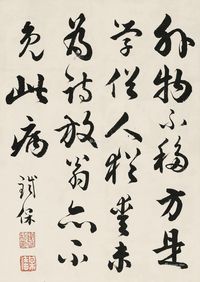 外物不移方是
学俗人猶愛未
為詩放翁亦不
免此病
鐵保